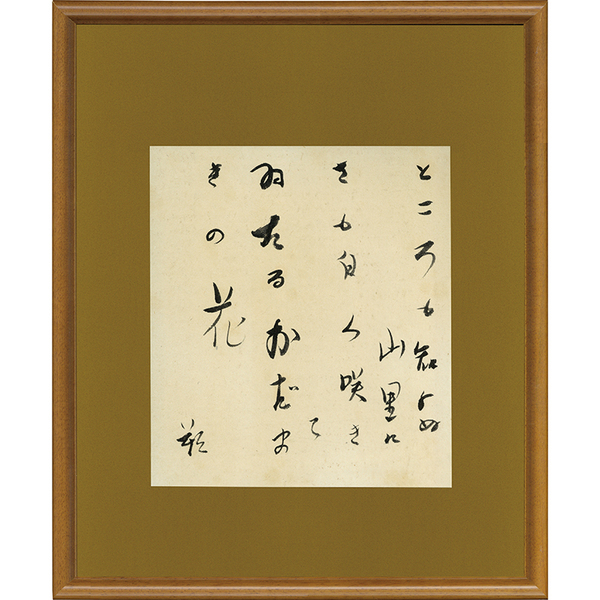 ところも知らぬ
山里に
さも白く咲き
て
ゐたるおだま
きの花
龍